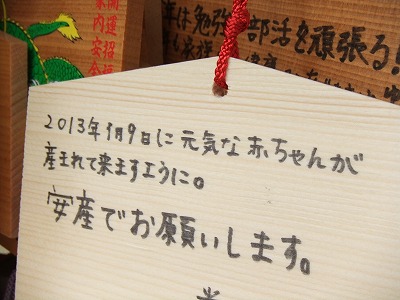 開運招福
家内安全
年は勉強 部活を頑張る!
2013年1月9日に元気な赤ちゃんが
産まれて来ますように。
安産でお願いします。